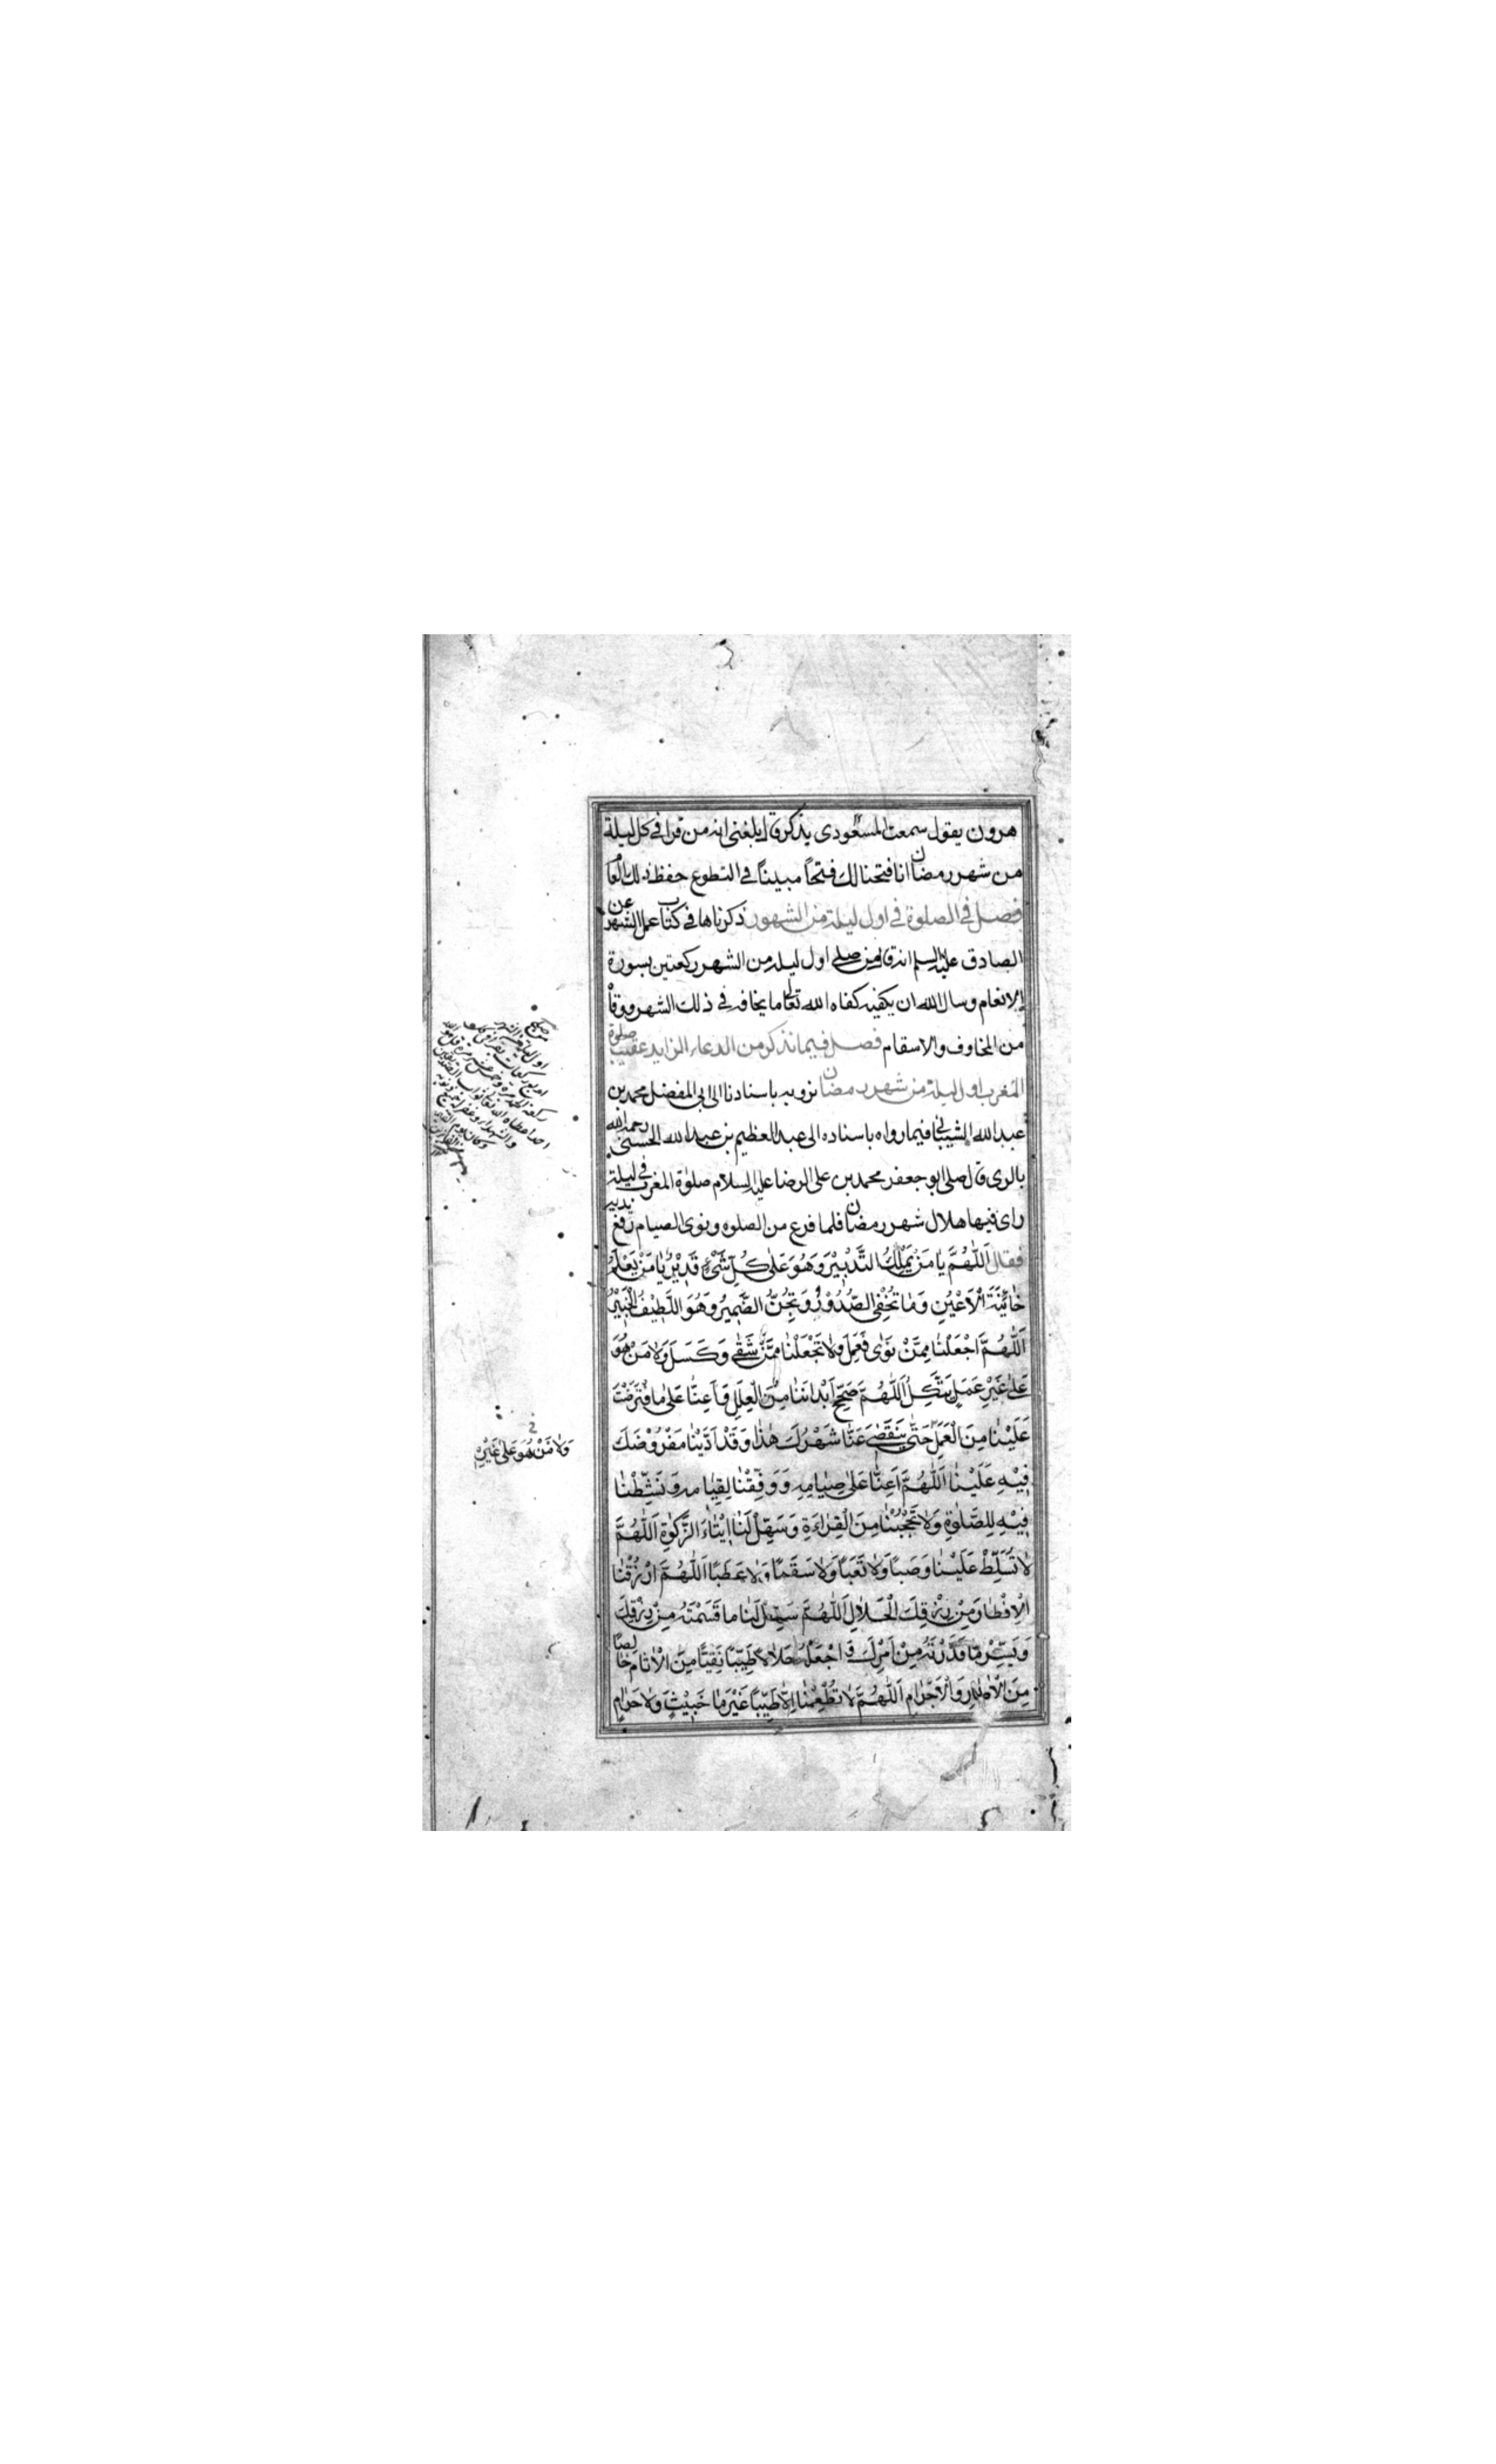 هرون يقول سمعت المسعودى يذكر قال بلغنى انه من قرا فى كل ليلة
من شهر رمضان انا فتحنا لك فتحاً مبيناً فى التطوع حفظ ذلك العام
فصل فى الصلوة فى اول ليلة من الشهور ذكرناها فى كتاب عمل الشهر عن
الصادق عليه السلم انه قال من صلى اول ليله من الشهر ركعتين بسورة
الانعام وسال الله ان يكفيه كفاه الله تعالى ما يخافه فى ذلك الشهر ووقاه
من المخاوف والاسقام فصل فيما نذكر من الدعاء الزايد عقيب صلوة
المغرب اول ليلة من شهر رمضان نرويه باسنادنا الى ابى المفضل محمد بن
عبد الله الشيبانى فيما رواه باسناده الى عبد العظيم بن عبد الله الحسنى رحمه الله
بالرى قال صلى ابو جعفر محمد بن على الرضا عليه السلام صلوة المغرب فى ليلة
راى فيها هلال شهر رمضان فلما فرغ من الصلوه ونوى الصيام رفع يديه
فقال اَللّٰهُمَّ يا مَنْ يَمْلِكُ التَّدْبِيْرَ وَهُوَ عَلٰى كُلِّ شَىْءٍ قَدِيْرٌ يا مَنْ يَعْلَمُ
خٰائِنَةَ الْاَعْيُنِ وَمٰا تُخْفِى الصُّدُوْرُ وَتُجِنُّ الضَّمِيرُ وَهُوَ اللَّطِيْفُ الْخَبِيْرُ
اَللّٰهُمَّ اجْعَلْنٰا مِمَّنْ نَوٰى فَعَمِلَ وَلاٰ تَجْعَلْنٰا مِمَّنْ شَقٰى وَكَسَلَ وَلاٰ مَنْ هُوَ
عَلٰى غَيْرِ عَمَلٍ يَتَّكِلُ اَللّٰهُمَّ صَحِّحْ اَبْدانَنٰا مِنَ الْعِلَلِ وَاَعِنّٰا عَلٰى مَا افْتَرَضْتَ
عَلَيْنٰا مِنَ الْعَمَلِ حَتّٰى يَنْقَضِىَ عَنّٰا شَهْرُكَ هٰذٰا وَقَدْ اَدَّيْنٰا مَفْرُوْضَكَ
فِيْهِ عَلَيْنٰا اَللّٰهُمَّ اَعِنّٰا عَلٰى صِيٰامِهِ وَوَفِّقْنٰا لِقِيٰامِهِ وَنَشِّطْنٰا
فِيْهِ لِلصَّلٰوةِ وَلاٰ تَحْجُبْنٰا مِنَ الْقِرٰاءَةِ وَسَهِّلْ لَنٰا اِيْتٰاءَ الزَّكٰوةِ اَللّٰهُمَّ
لاٰ تُسَلِّطْ عَلَيْنٰا وَصَبًا وَلاٰ تَعَبًا وَلاٰ سَقَمًا وَلاٰ عَطَبًا اَللّٰهُمَّ ارْزُقْنٰا
الْاِفْطٰارَ مِنْ رِزْقِكَ الْحَلاٰلِ اَللّٰهُمَّ سَهِّلْ لَنٰا ما قَسَمْتَهُ مِنْ رِزْقِكَ
وَيَسِّرْ مٰا قَدَّرْتَهُ مِنْ اَمْرِكَ وَاجْعَلْهُ حَلاٰلاً طَيِّبًا نَقِيًّا مِنَ الْاٰثامِ خٰالِصًا
مِنَ الْاٰصٰارِ وَالْاَجْرٰامِ اَللّٰهُمَّ لاٰ تُطْعِمْنٰا اِلاّٰ طَيِّبًا غَيْرَ مٰا خَبِيْثٍ وَلاٰ حَرٰامٍ
وَلاٰ مَنْ هُوَ عَلٰى غَيْرِهِ